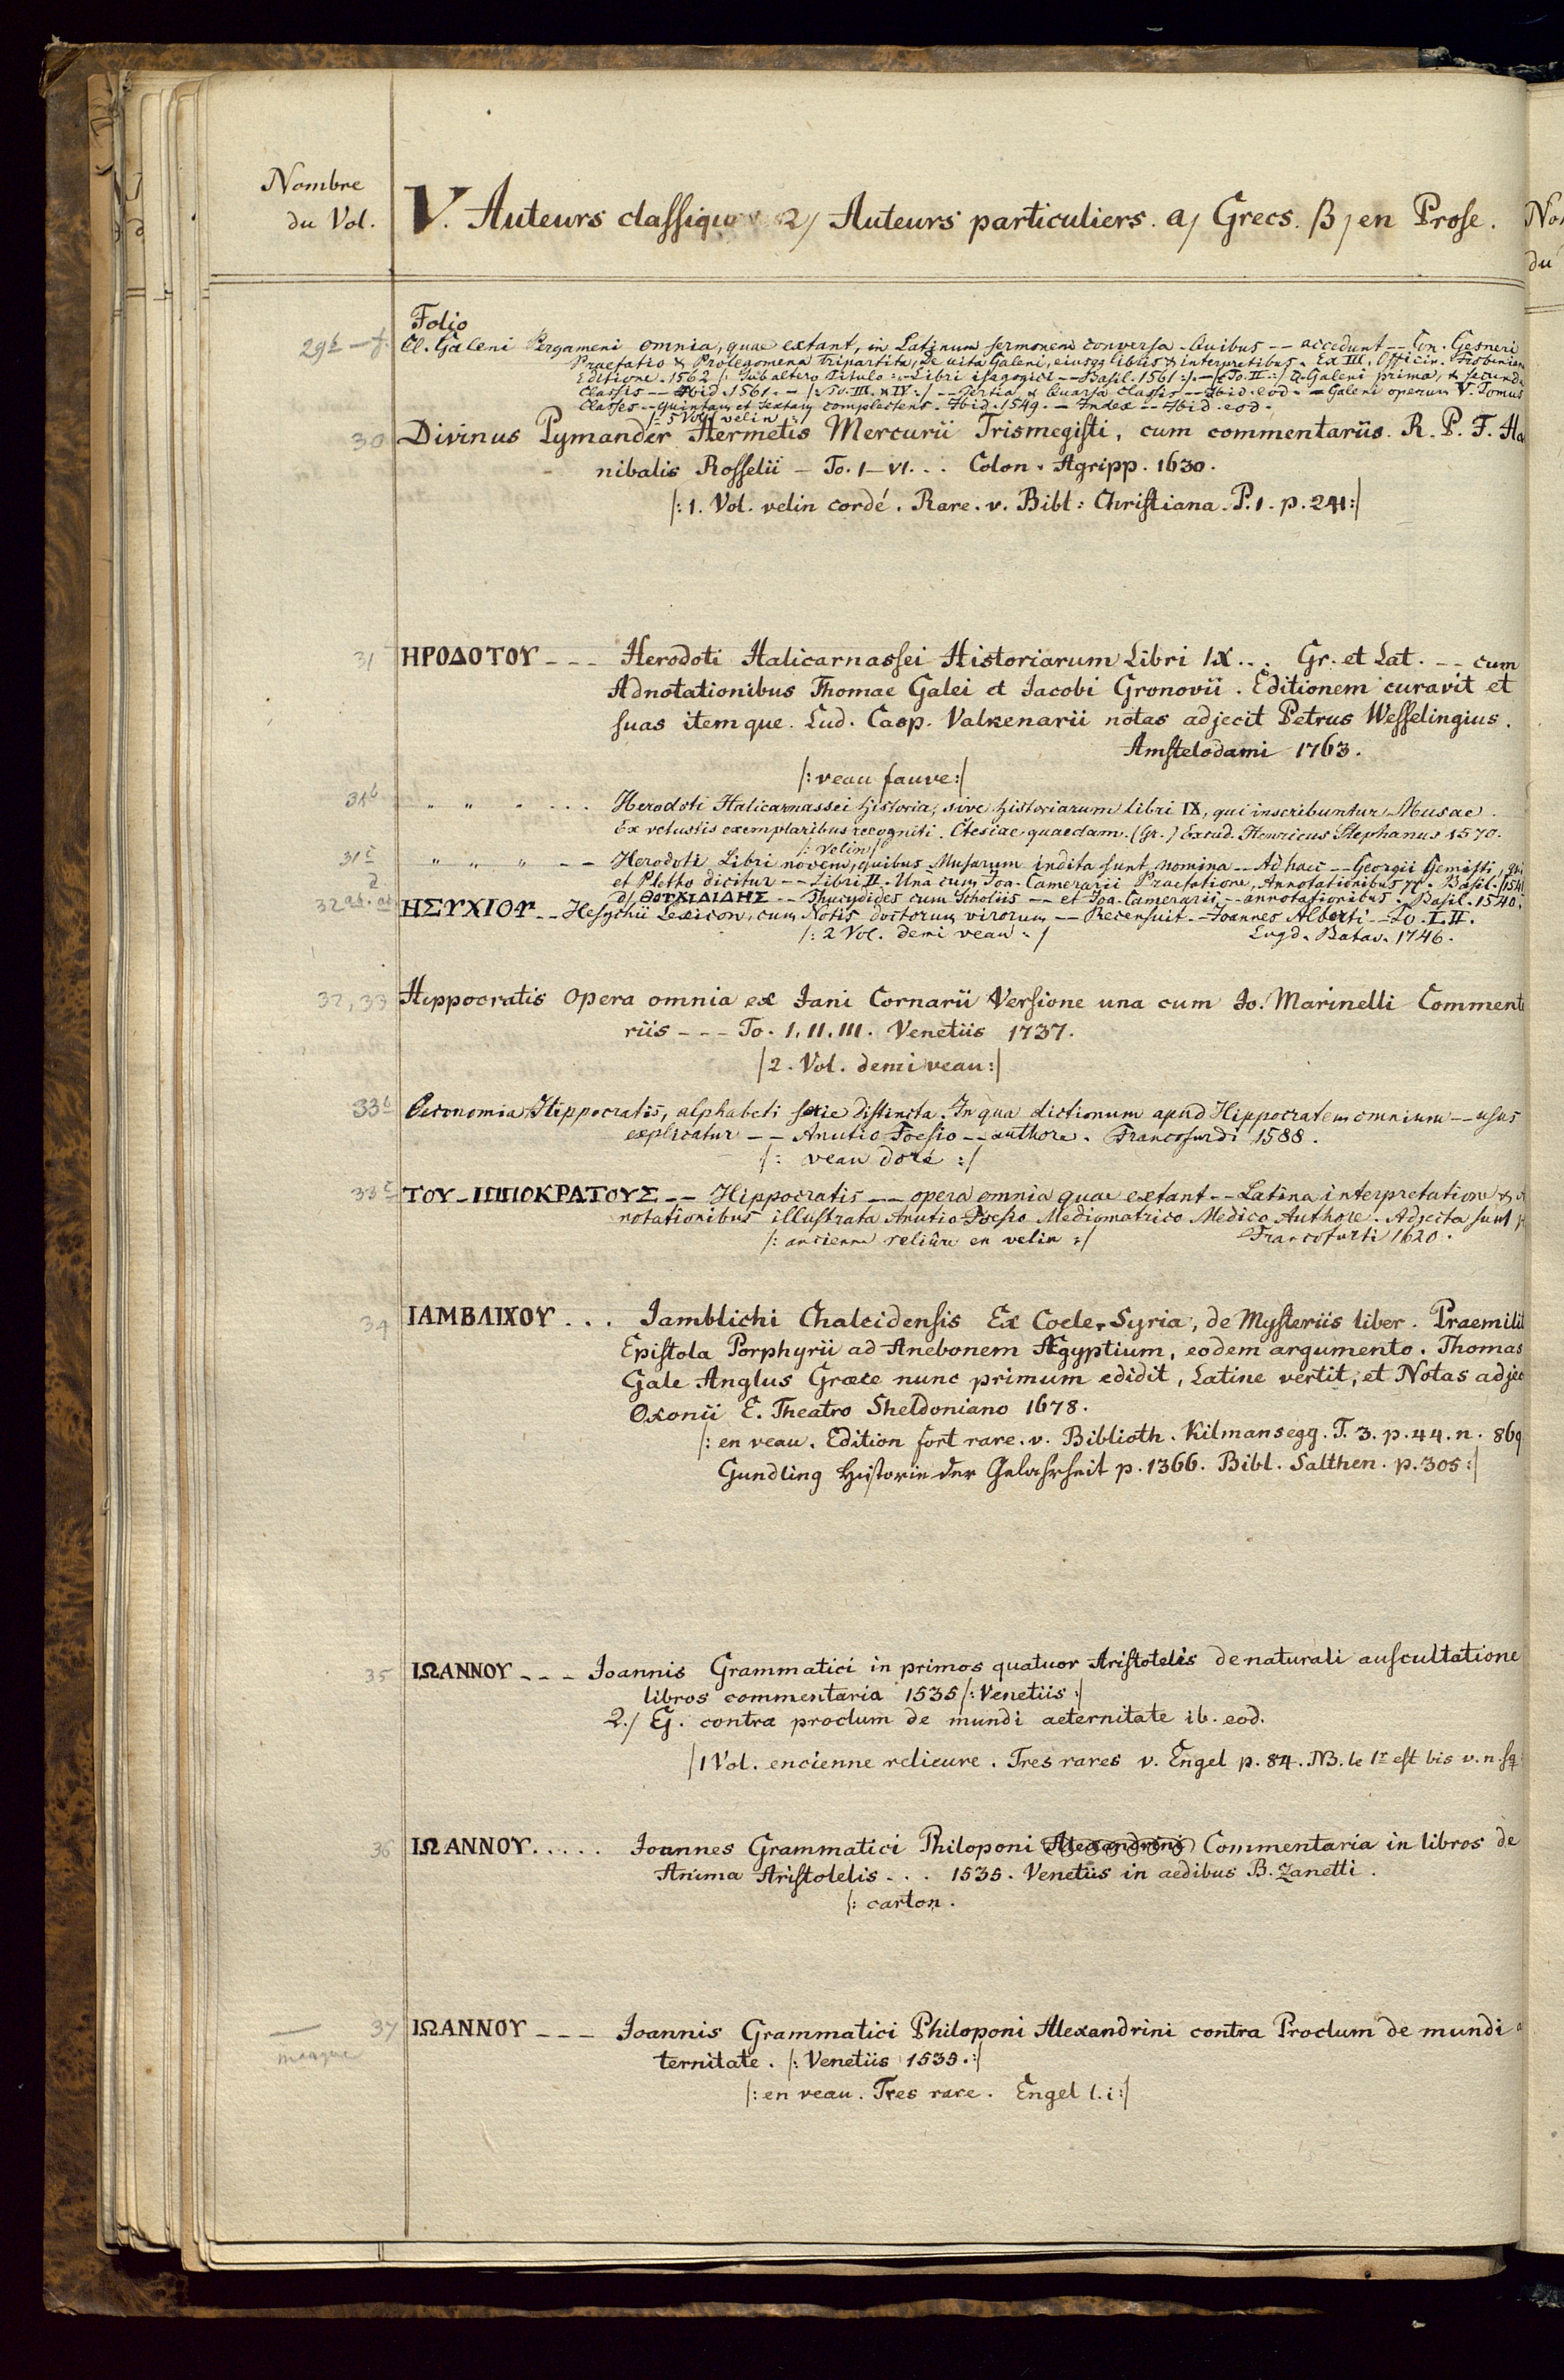 Nombre
du Vol.
V. Auteurs classiques 2/ Auteurs particuliers. a/ Grecs. β/ en Prose.
Folio
29b — f. Cl. Galeni Pergameni omnia, quae extant, in Latinum sermonem conversa. Quibus -- accedunt -- Con. Gesneri
Praefatio & Prolegomena tripartita, De vita Galeni, eiusqq libris & interpretibus. Ex III. Officin. Frobenian
Editione. 1562 /: Sub altero Titulo :-Libri isagogici -- Basil. 1561 :/. -- /: To. II :/ Cl. Galeni prima, & secunda
Classis -- Ibid. 1561. -- /: To. III. & IV :/ -- Tertia & Quarta Classis -- Ibid. eod. -- Galeni operum V. Tomus
Classes -- Quintam et Sextam complectens. Ibid. 1549. -- Index -- Ibid. eod.
/: 5 Vol. velin :/
30 Divinus Pymander Hermetis Mercurii Trismegisti, cum commentariis. R. P. F. Ha
nibalis Rosselii — To. I—VI... Colon. Agripp. 1630.
/: 1. Vol. velin cordé. Rare. v. Bibl: Christiana. P. 1. p. 241:/
31 ΗΡΟΔΟΤΟΥ --- Herodoti Halicarnassei Historiarum Libri IX... Gr. et Lat. -- cum
Adnotationibus Thomae Galei et Jacobi Gronovii. Editionem curavit et
suas itemque. Lud. Casp. Valkenarii notas adjecit Petrus Wesselingius.
Amstelodami 1763.
/: veau fauve:/
31b " " " ... Herodoti Halicarnassei historia, sive historiarum libri IX, qui inscribuntur Musae.
Ex vetustis exemplaribus recogniti. Ctesiae quaedam. (Gr.) Excud. Henricus Stephanus 1570.
/: Velin/
31c " " " -- Herodoti Libri novem, quibus Musarum indita sunt nomina -- Ad haec -- Georgii Gemisti, qui
et Pletho dicitur -- Libri II. Una cum Joa. Camerarii Praefatione, Annotationibus. Basil. 1541
d d/ ΘΟΥΚΙΔΙΔΗΣ -- Thucydides cum Scholiis -- et Joa. Camerarii -- annotationibus. Basil. 1540.
32 ΗΣΥΧΙΟΥ -- Hesychii Lexicon, cum Notis doctorum virorum -- Recensuit -- Joannes Alberti -- To. I. II.
/: 2 Vol. demi veau :/ Lugd. Batav. 1746.
32, 33 Hippocratis Opera omnia ex Iani Cornarii Versione una cum Jo. Marinelli Commenta
riis --- To. I. II. III. Venetiis 1737.
/2. Vol. demi veau:/
33b Oeconomia Hippocratis, alphabeti serie distincta. In qua dictionum apud Hippocratem omnium -- usus
explicatur -- Anutio Foesio -- authore. Francofurdi 1588.
/: veau doré :/
33c ΤΟΥ - ΙΠΠΟΚΡΑΤΟΥΣ -- Hippocratis -- opera omnia quae extant -- Latina interpretatione &
notationibus illustrata Anutio Foesio Mediomatrico Medico Authore. Adjecta sunt
/: ancienne reliûre en velin :/ Francofurti 1620.
34 ΙΑΜΒΛΙΧΟΥ ... Jamblichi Chalcidensis Ex Coele-Syria, de Mysteriis liber. Praemitti
Epistola Porphyrii ad Anebonem Ægyptium, eodem argumento. Thomas
Gale Anglus Græce nunc primum edidit, Latine vertit, et Notas adjec
Oxonii E. Theatro Sheldoniano 1678.
/: en veau. Edition fort rare. v. Biblioth. Kilmansegg. T. 3. p. 44. n. 869
Gundling Historie der Gelahrheit p. 1366. Bibl. Salthen. p. 305:/
35 ΙΩΑΝΝΟΥ --- Joannis Grammatici in primos quatuor Aristotelis de naturali auscultatione
libros commentaria 1535 /: Venetiis :/
2./ Ej. contra proclum de mundi aeternitate ib. eod.
/1 Vol. encienne relieure. Tres rares v. Engel p. 84. NB. le 1r est bis v. n. sq.
36 ΙΩΑΝΝΟΥ ..... Joannes Grammatici Philoponi Alexandrini Commentaria in libros de
Anima Aristotelis ... 1535. Venetiis in aedibus B. Zanetti.
/: carton.
37 ΙΩΑΝΝΟΥ --- Joannis Grammatici Philoponi Alexandrini contra Proclum de mundi a
manque
ternitate. /: Venetiis 1535.:/
/: en veau. Tres rare. Engel l. i:/